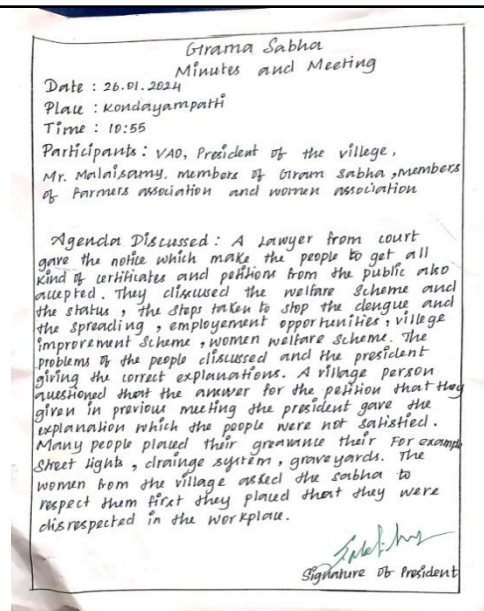 Grama Sabha
Minutes and Meeting
Date : 26.01.2024
Place : Kondayampatti
Time : 10:55
Participants : VAO, President of the villege,
Mr. Malaisamy. members of Gram Sabha , members
of Farmers association and women association
Agenda Discussed : A Lawyer from court
gave the notice which make the people to get all
kind of certificates and petitions from the public also
accepted. They discussed the welfare Scheme and
the status , the steps taken to stop the dengue and
the spreading , employement opportunities , villege
improvement scheme , women welfare scheme. The
problems of the people discussed and the president
giving the correct explanations. A village person
questioned that the answer for the petition that they
given in previous meeting the president gave the
explanation which the people were not satisfied.
Many people placed their greavance their For example
street lights , drainge system , graveyards. The
women from the village asked the sabha to
respect them first they placed that they were
disrespected in the workplace.
Signature of President